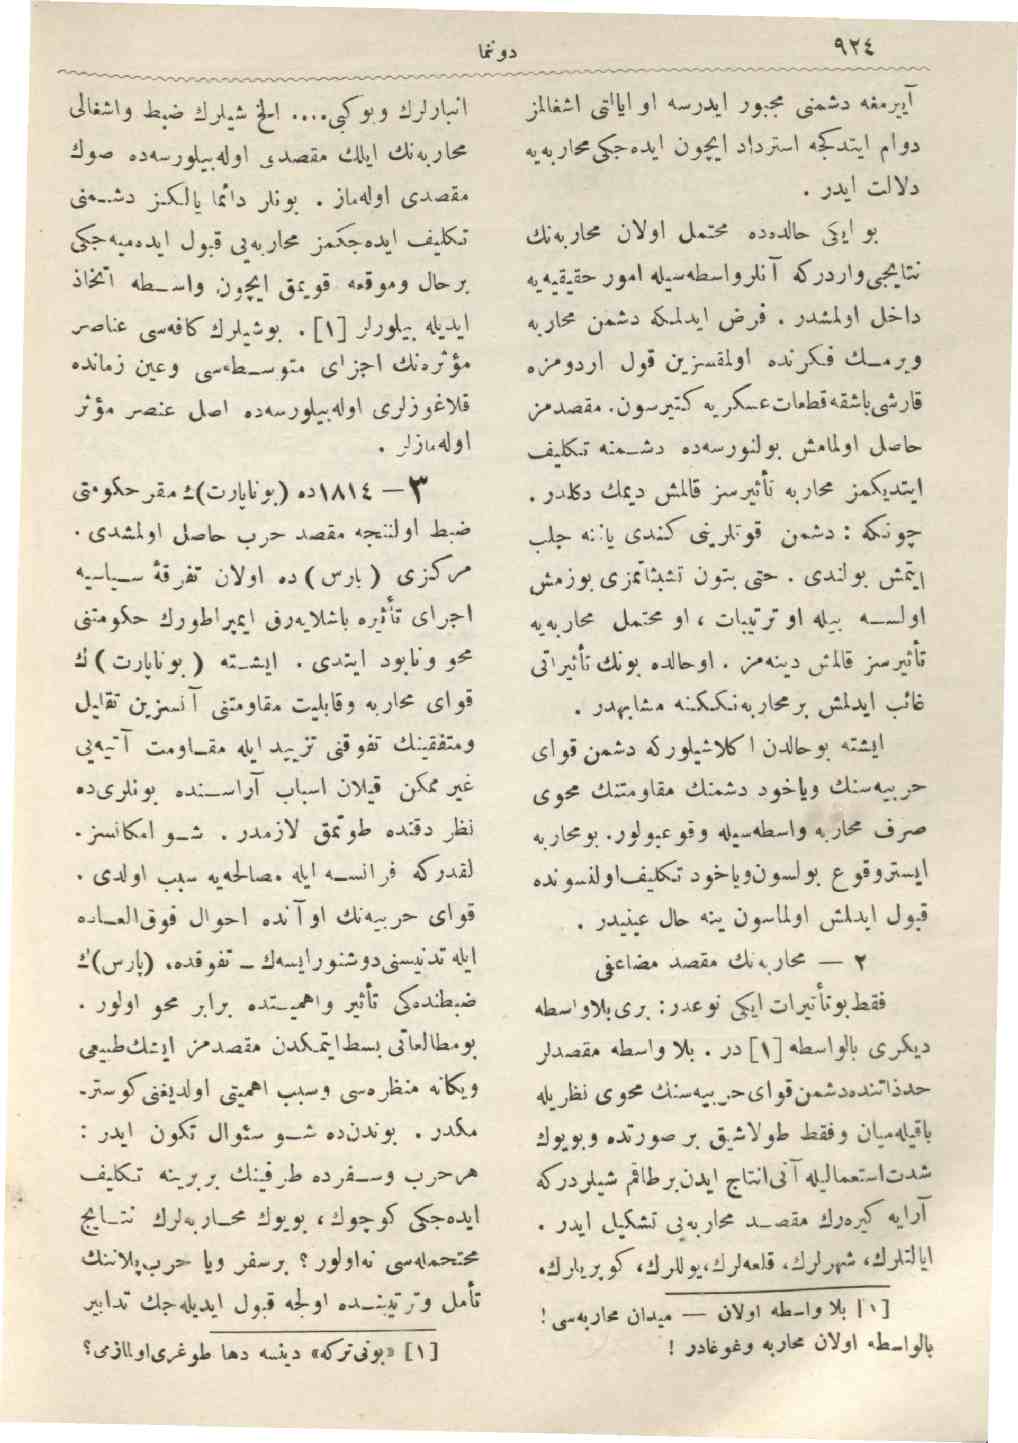 ٩٢٤
دوننما
آیرمغه دشمنی مجبور ایدرسه او ایالتی اشغالمز
دوام ایتدكجه استرداد ایچون ایده‌جكی محاربه‌یه
دلالت ایدر .
بو ایكی حالده‌ده محتمل اولان محاربه‌نك
نتایجی واردركه آنلر واسطه‌سیله امور حقیقیه‌یه
داخل اولمشدر . فرض ایدلمكه دشمن محاربه
ویرمك فكرنده اولمقسزین قول اردومزه
قارشی باشقه قطعات عسكریه كتیرسون. مقصدمز
حاصل اولمامش بولنورسه‌ده دشمنه تكلیف
ایتدیكمز محاربه تأثیرسز قالمش دیمك دكلدر .
چونكه : دشمن قوتلرینی كندی یاننه جلب
ایتمش بولندی . حتی بتون تشبثاتمزی بوزمش
اولسه بیله او ترتیبات ، او محتمل محاربه‌یه
تأثیرسز قالمش دینه‌مز . اوحالده بونك تأثیراتی
غائب ایدلمش بر محاربه‌نككنه مشابهدر .
ایشته بوحالدن اكلاشیلوركه دشمن قوای
حربیه‌سنك ویاخود دشمنك مقاومتنك محوی
صرف محاربه واسطه‌سیله وقوعبولور. بومحاربه
ایستروقوع بولسون ویاخود تكلیف اولنسونده
قبول ایدلمش اولماسون ینه حال عینیدر .
٢ — محاربه‌نك مقصد مضاعفی
فقط بوتأثیرات ایكی نوعدر: بری بلاواسطه
دیكری بالواسطه [١] در . بلا واسطه مقصدلر
حدذاتنده دشمن قوای حربیه‌سنك محوی نظریله
باقیله‌میان وفقط طولاشیق بر صورتده وبویوك
شدت استعمالیله آنی انتاج ایدن برطاقم شیلردركه
آرایه كیره‌رك مقصد محاربه‌یی تشكیل ایدر .
ایالتلرك، شهرلرك، قلعه‌لرك، یوللرك، كوپریلرك،
[١] بلا واسطه اولان — میدان محاربه‌سی !
بالواسطه اولان محاربه وغوغادر !
انبارلرك وبوكبی.... الخ شیلرك ضبط واشغالی
محاربه‌نك ایلك مقصدی اوله‌بیلورسه‌ده صوك
مقصدی اوله‌ماز . بونلر دائما یالكز دشمنی
تكلیف ایده‌جكمز محاربه‌یی قبول ایده‌میه‌جكی
برحال وموقعه قویمق ایچون واسطه اتخاذ
ایدیله بیلورلر [١] . بوشیلرك كافه‌سی عناصر
مؤثره‌نك اجزای متوسطه‌سی وعین زمانده
قلاغوزلری اوله‌بیلورسه‌ده اصل عنصر مؤثر
اوله‌مازلر .
٣ — ١٨١٤ ده (بوناپارت)ك مقر حكومتی
ضبط اولننجه مقصد حرب حاصل اولمشدی .
مركزی (پارس) ده اولان تفرقهٔ سیاسیه
اجرای تأثیره باشلایه‌رق ایمپراطورك حكومتنی
محو ونابود ایتدی . ایشته (بوناپارت)ك
قوای محاربه وقابلیت مقاومتنی آنسزین تقلیل
ومتفقینك تفوقنی تزیید ایله مقاومت آتیه‌یی
غیر ممكن قیلان اسباب آراسنده بونلری‌ده
نظر دقتده طوتمق لازمدر . شو امكانسز-
لقدركه فرانسه ایله مصالحه‌یه سبب اولدی .
قوای حربیه‌نك اوآنده احوال فوق‌العاده
ایله تدنیسنی دوشنورایسه‌ك – تفوقده، (پارس)ك
ضبطنده‌كی تأثیر واهمیتده برابر محو اولور .
بومطالعاتی بسط ایتمكدن مقصدمز ایشك طبیعی
ویكانه منظره‌سی وسبب اهمیتی اولدیغنی كوستر-
مكدر . بوندن‌ده شو سئوال تكون ایدر :
هرحرب وسفرده طرفینك بربرینه تكلیف
ایده‌جكی كوچوك، بویوك محاربه‌لرك نتایج
محتحمله‌سی نه‌اولور ؟ برسفر ویا حرب پلاننك
تأمل وترتیبنده اولجه قبول ایدیله‌جك تدابیر
[١] «بونی تركه» دینسه دها طوغری اولمازمی؟